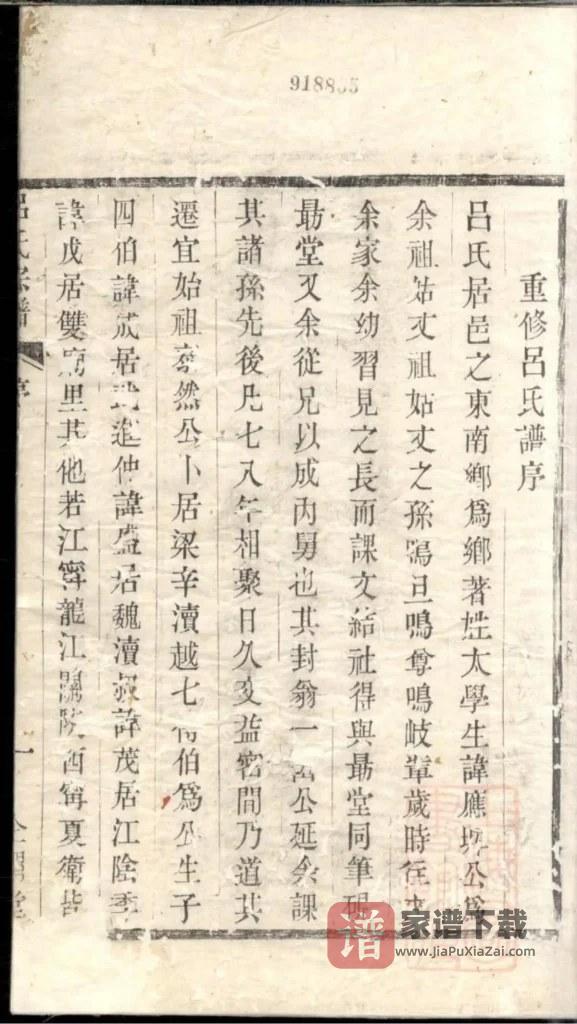 918835
重修呂氏譜序
呂氏居邑之東南鄉爲鄉著姓太學生諱應坼公爲
余祖姑丈祖姑丈之孫鳴旦鳴尊鳴岐輩歲時往來
余家余幼習見之長而課文結社得與最堂同筆硯
最堂又余從兄以成內舅也其封翁一公延余課
其諸孫先後凡七八年相聚日久交益密間乃道其
遷宜始祖然公卜居梁辛瀆越七傳伯爲公生子
四伯諱成居武進仲諱盛居魏瀆叔諱茂居江陰季
諱戊居雙里其他若江寧龍江關陝西甯夏衛皆
呂氏宗譜
序
一
譜
家谱下载
www.JiaPuXiaZai.com